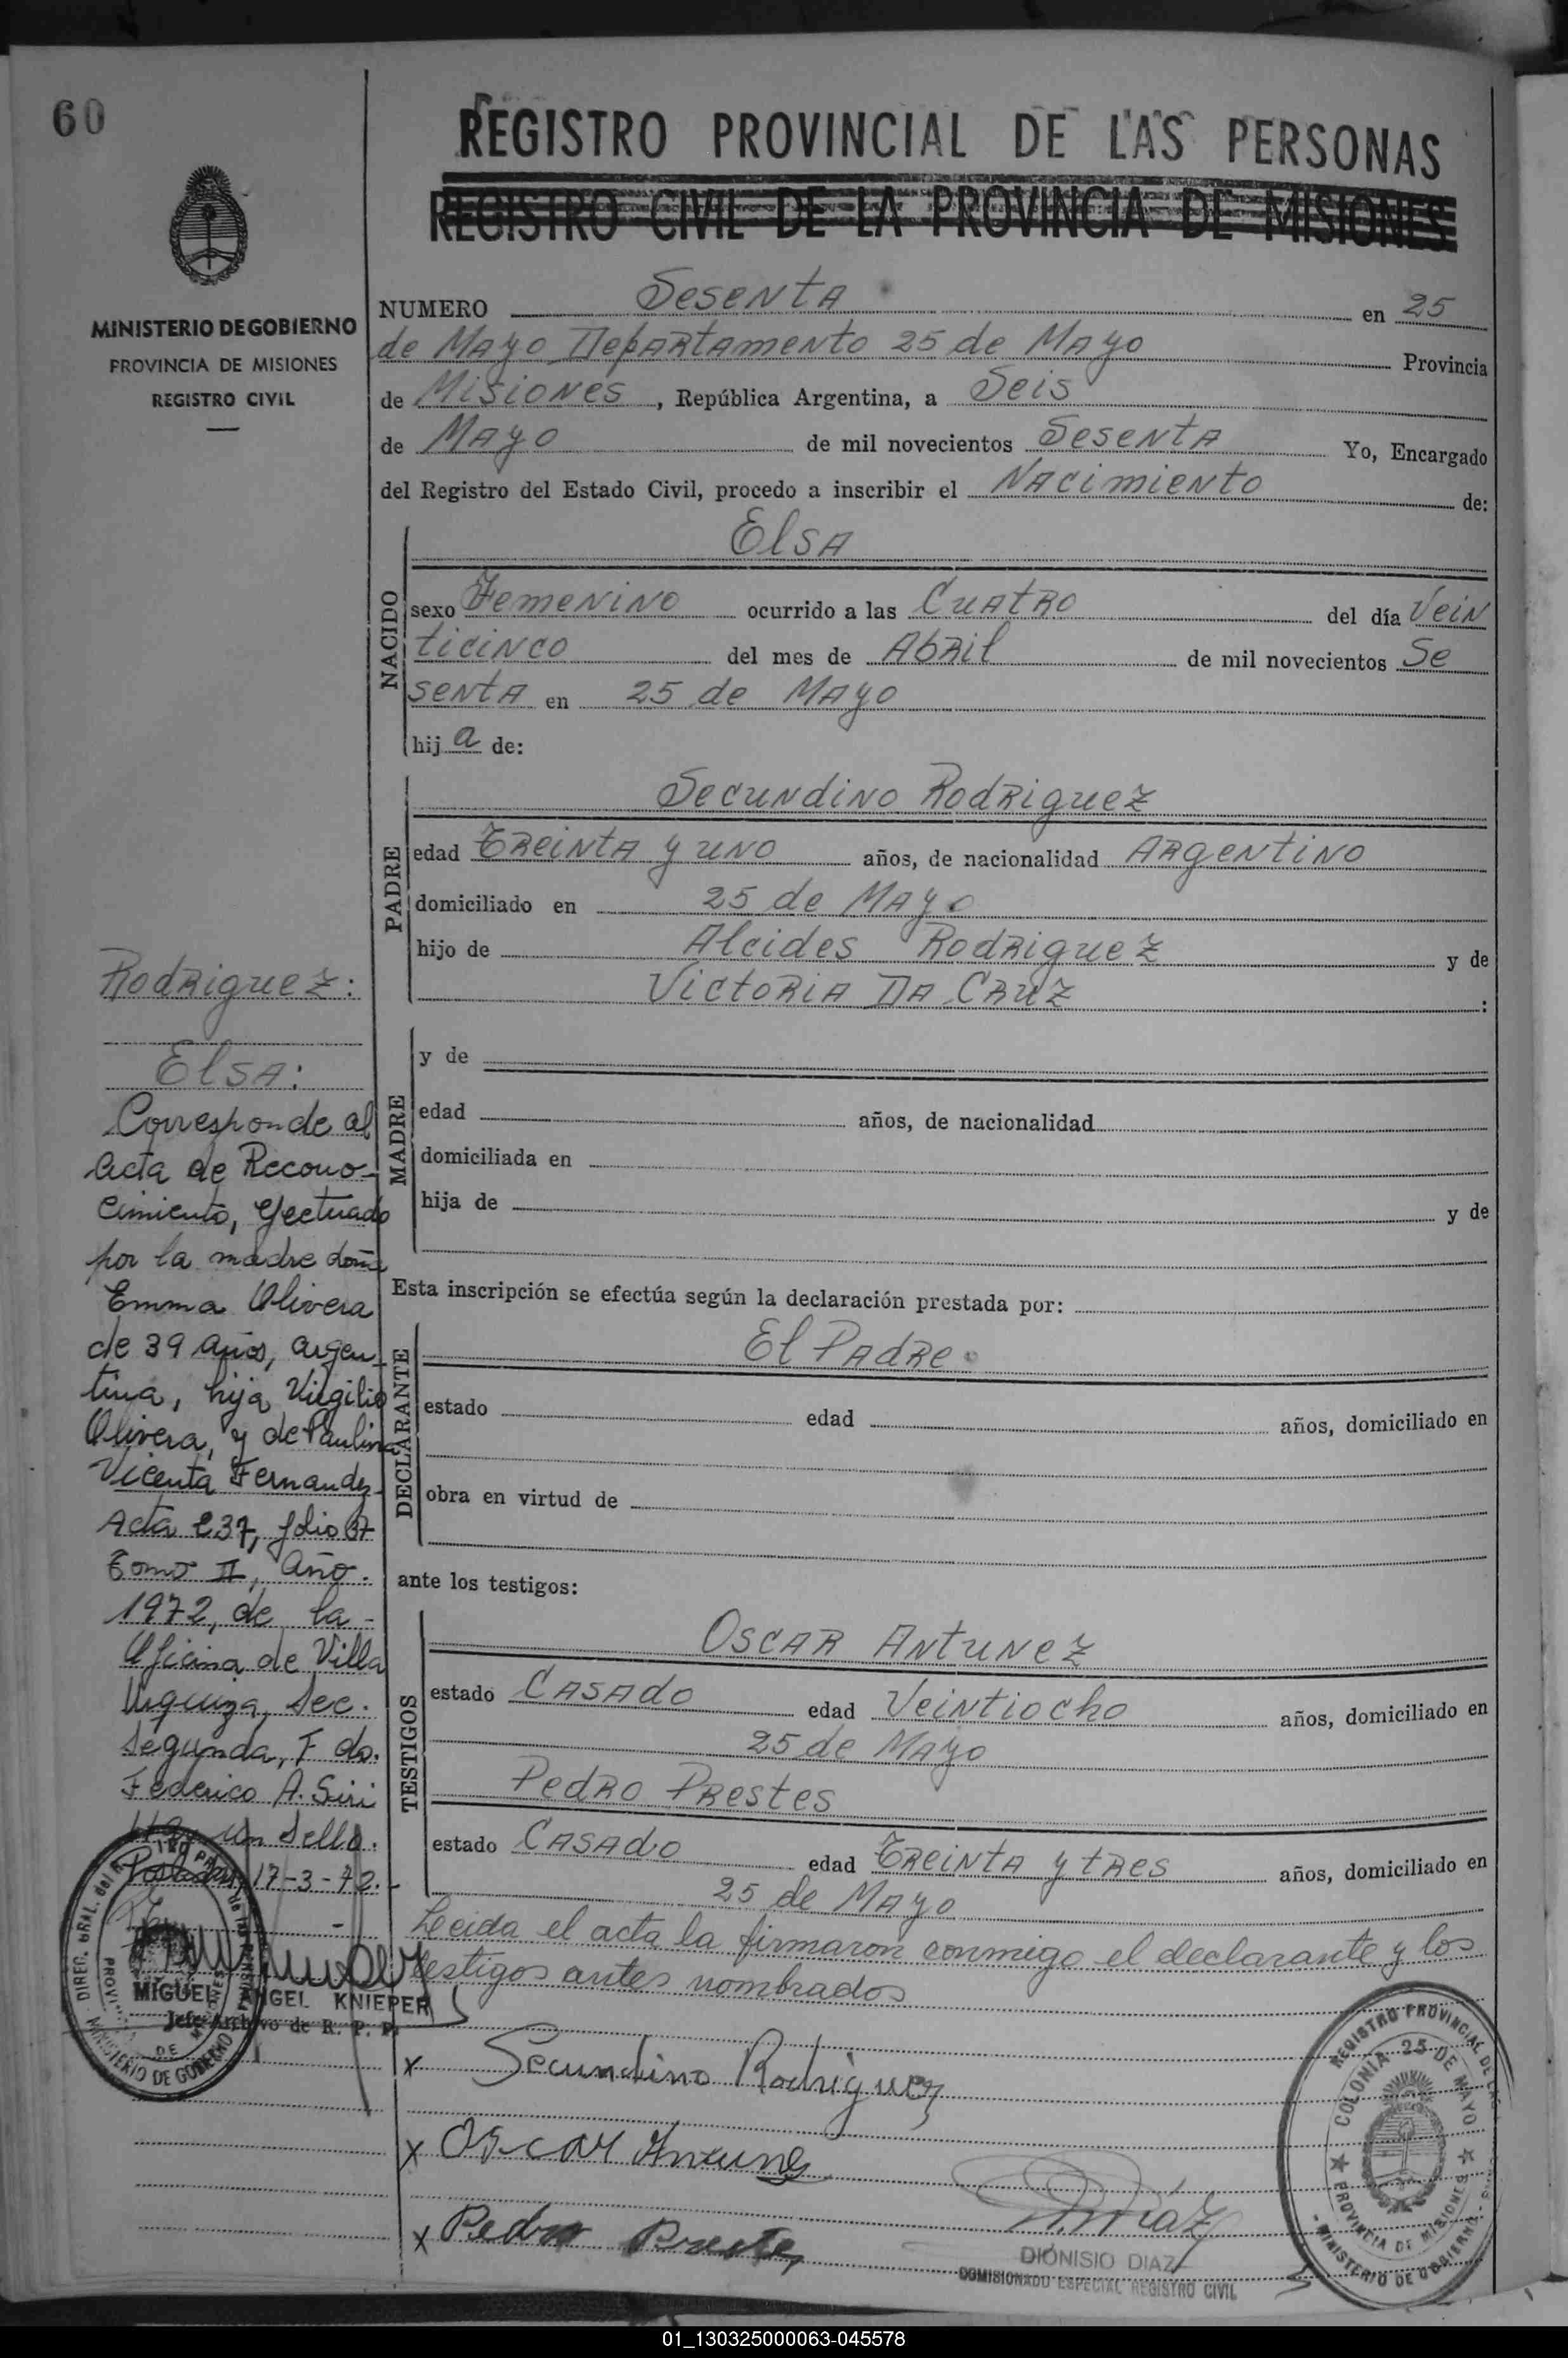 60
REGISTRO PROVINCIAL DE LAS PERSONAS
REGISTRO CIVIL DE LA PROVINCIA DE MISIONES
MINISTERIO DE GOBIERNO
PROVINCIA DE MISIONES
REGISTRO CIVIL
NUMERO Sesenta en 25
de Mayo Departamento 25 de Mayo Provincia
de Misiones, República Argentina, a Seis
de Mayo de mil novecientos Sesenta Yo, Encargado
del Registro del Estado Civil, procedo a inscribir el Nacimiento de:
NACIDO
Elsa
sexo Femenino ocurrido a las Cuatro del día Vein
ticinco del mes de Abril de mil novecientos Se
senta en 25 de Mayo
hij a de:
PADRE
Secundino Rodriguez
edad Treinta y uno años, de nacionalidad Argentino
domiciliado en 25 de Mayo
hijo de Alcides Rodriguez y de
Victoria Da Cruz :
MADRE
y de
edad años, de nacionalidad
domiciliada en
hija de y de
Esta inscripción se efectúa según la declaración prestada por:
DECLARANTE
El Padre
estado edad años, domiciliado en
obra en virtud de
ante los testigos:
TESTIGOS
Oscar Antunez
estado Casado edad Veintiocho años, domiciliado en
25 de Mayo
Pedro Prestes
estado Casado edad Treinta y tres años, domiciliado en
25 de Mayo
Leida el acta la firmaron conmigo el declarante y los
testigos antes nombrados
x Secundino Rodriguez
x Oscar Antunes
x Pedro Prestes
Diaz
DIONISIO DIAZ
COMISIONADO ESPECIAL REGISTRO CIVIL
REGISTRO PROVINCIAL DE LAS
COLONIA 25 DE MAYO
PROVINCIA DE MISIONES
MINISTERIO DE GOBIERNO
Rodriguez:
Elsa:
Corresponde al
acta de Recono-
cimiento, efectuado
por la madre doña
Emma Olivera
de 39 años, argen-
tina, hija Virgilio
Olivera, y de Paulina
Vicenta Fernandez-
Acta 237, folio 37
Tomo II, año.
1972, de la-
Oficina de Villa
Urquiza, Sec.
Segunda, F do.
Federico A. Siri
Hay un Sello.
Posadas, 17-3-72.-
MIGUEL ANGEL KNIEPER
Jefe Archivo de R. P. P.
DIREC. GRAL. del
MINISTERIO DE GOBIERNO
01_130325000063-045578